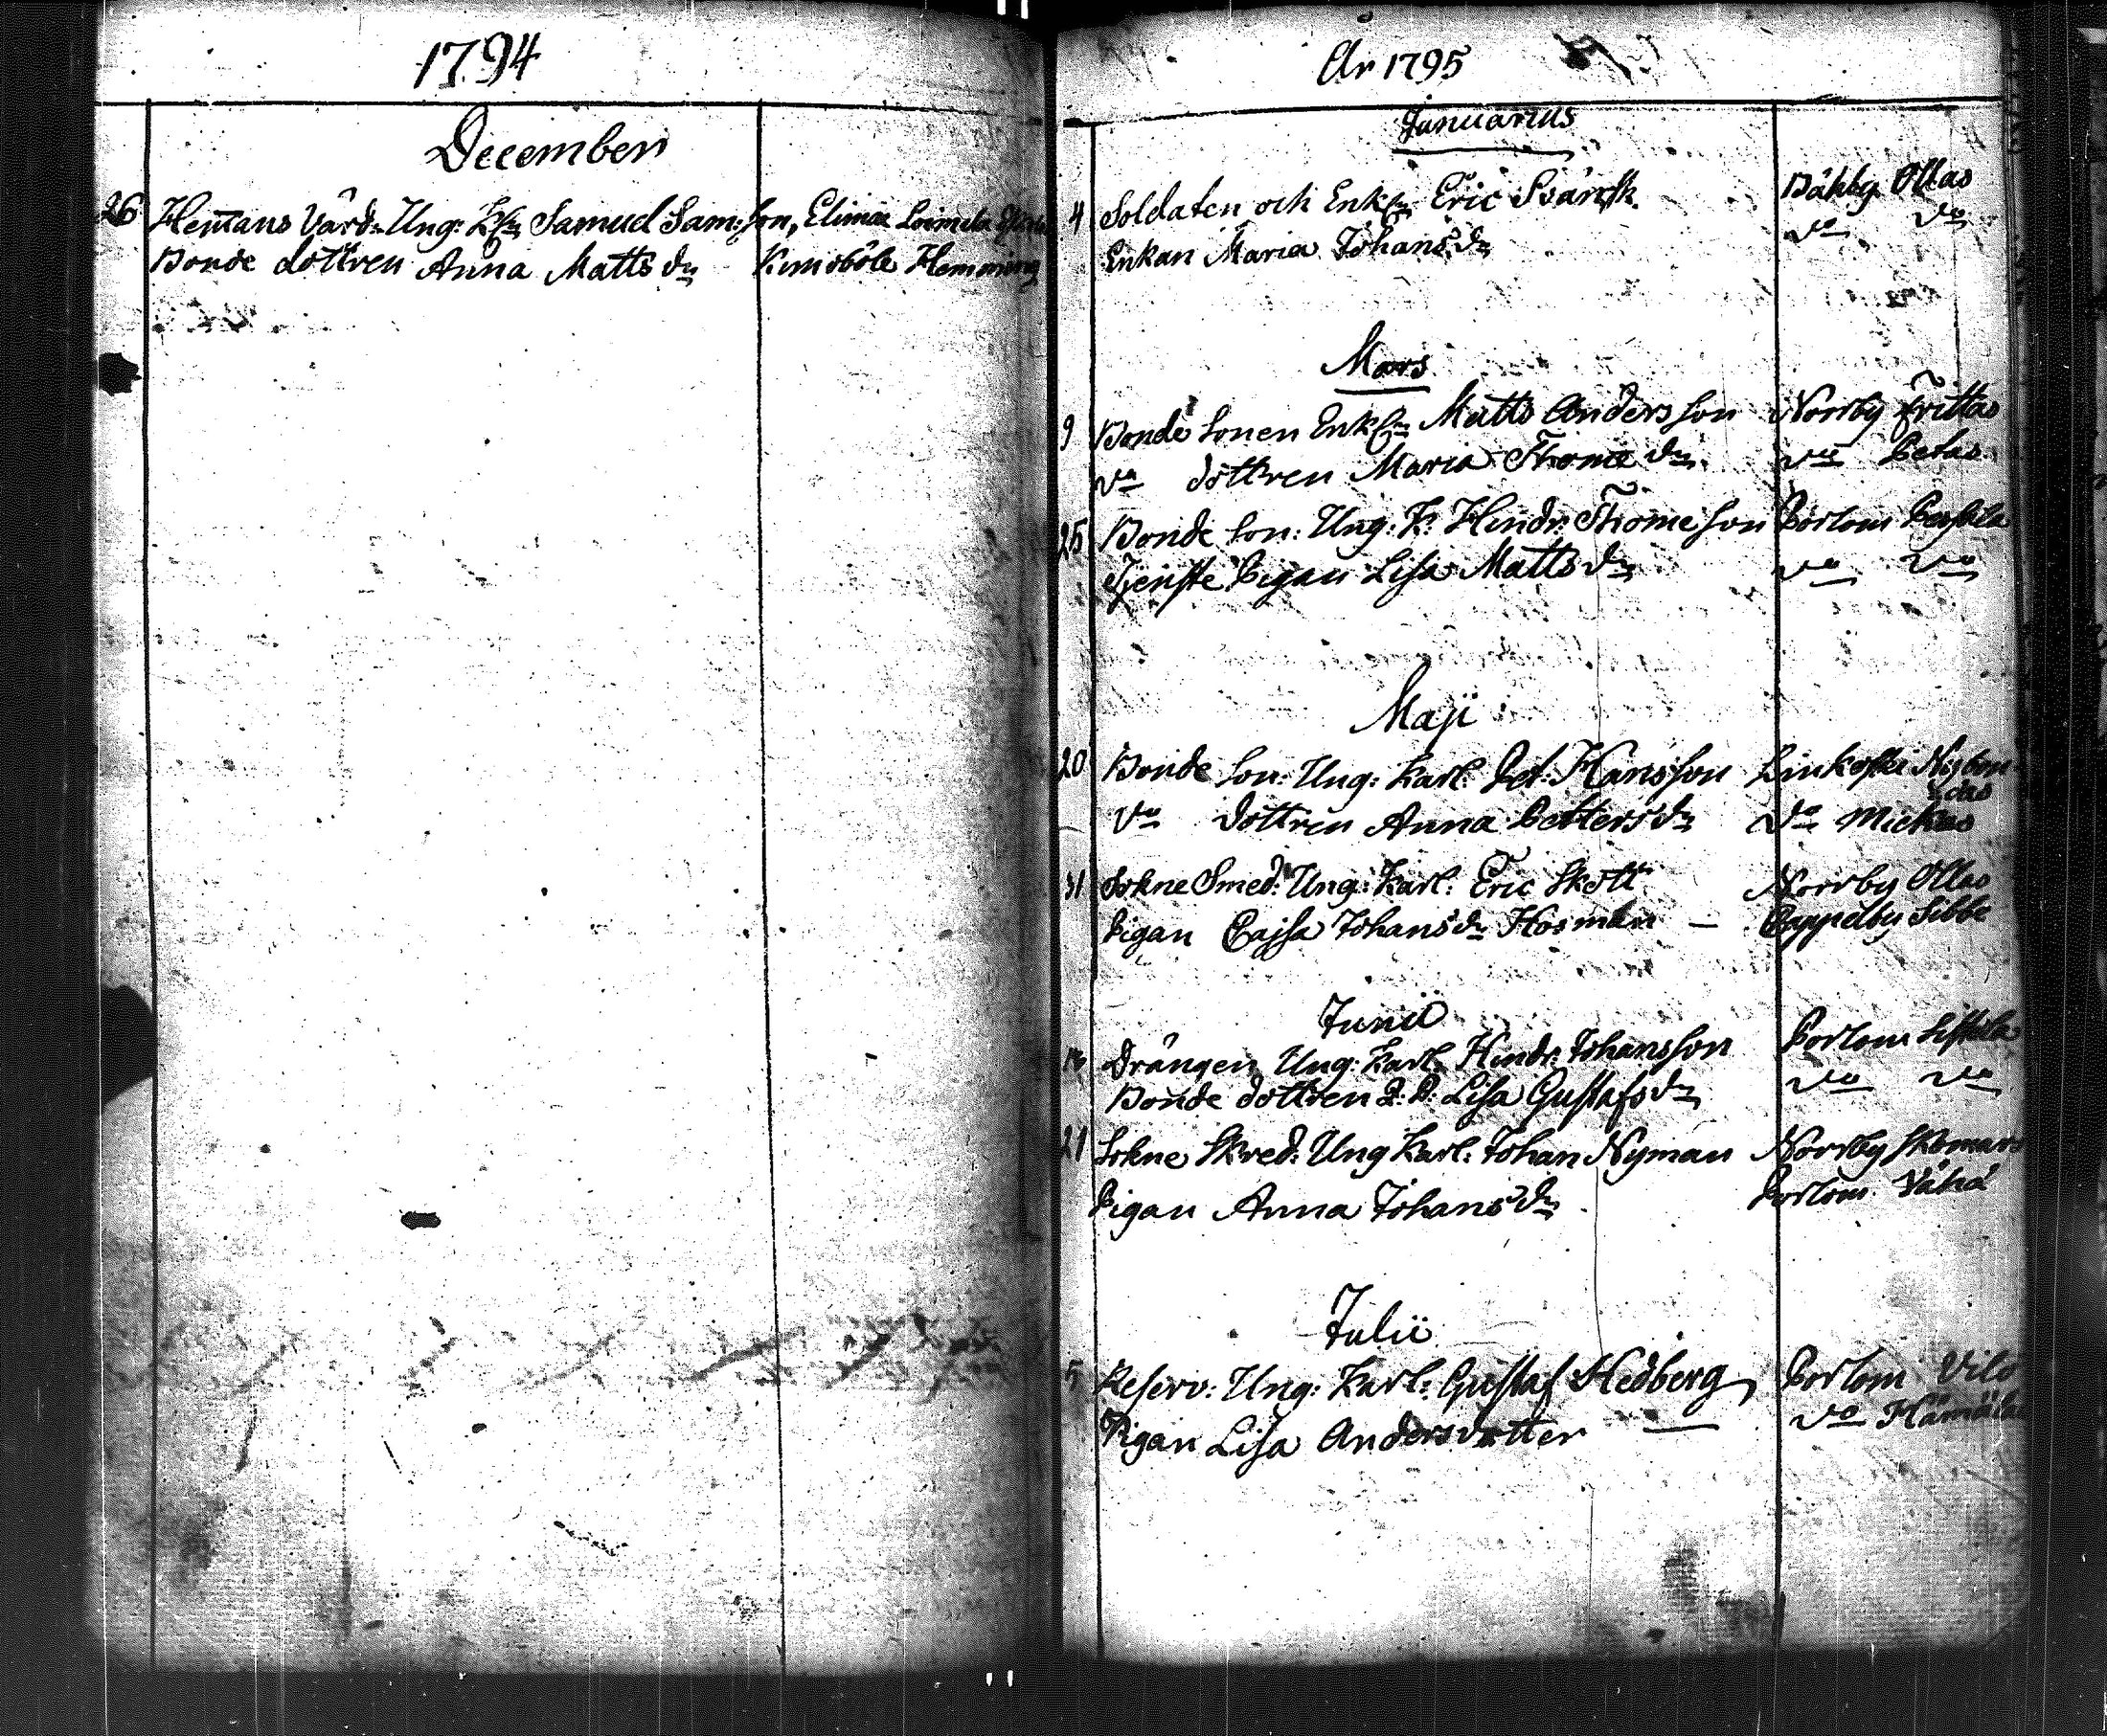 1794
December
26 Hem̄ans Värd: Ung: K: Samuel Sam:son, Elimä Loimela
Bonde dottren Anna Matts dr Kimoböle Hemming
År 1795
Januarius
4 Soldaten och Enkl: Eric Svärsk Bäkby Ollas
Enkan Maria Johans dr Do Do
Mars
9 Bonde Sonen Enkl: Matts Andersson Norrby Frittas
Do dottren Maria Thome dr Do Petas
25 Bonde Son: Ung: K: Hindr: Thomeson Porlom
Tjenste Pigan Lisa Matts dr Do Do
Maji
20 Bonde Son: Ung: Karl: Pet: Hansson Linkoski Nybon
das
Do dottren Anna Petters dr Do Mickas
31 Sokne Smed: Ung: Karl: Eric Skott Norrby Ollas
Pigan Cajsa Johans dr Hosman — Cappelby Sibbe
Junii
Drängen Ung: Karl: Hindr: Johansson Porlom
Bonde dottren Q: P: Lisa Gustafs dr Do Do
21 Sokne Skred: Ung Karl: Johan Nyman Norrby Skomars
Pigan Anna Johans dr Porlom Vähä
Julii
5 Reserv: Ung: Karl: Gustaf Hedberg Porlom Vilo
Pigan Lisa Andersdotter — Do